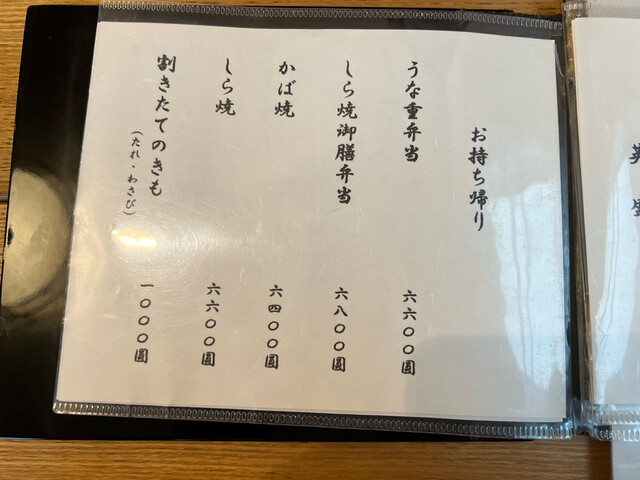 お持ち帰り
うな重弁当 六六〇〇圓
しら焼御膳弁当 六八〇〇圓
かば焼 六四〇〇圓
しら焼 六六〇〇圓
割きたてのきも 一〇〇〇圓
（たれ・わさび）